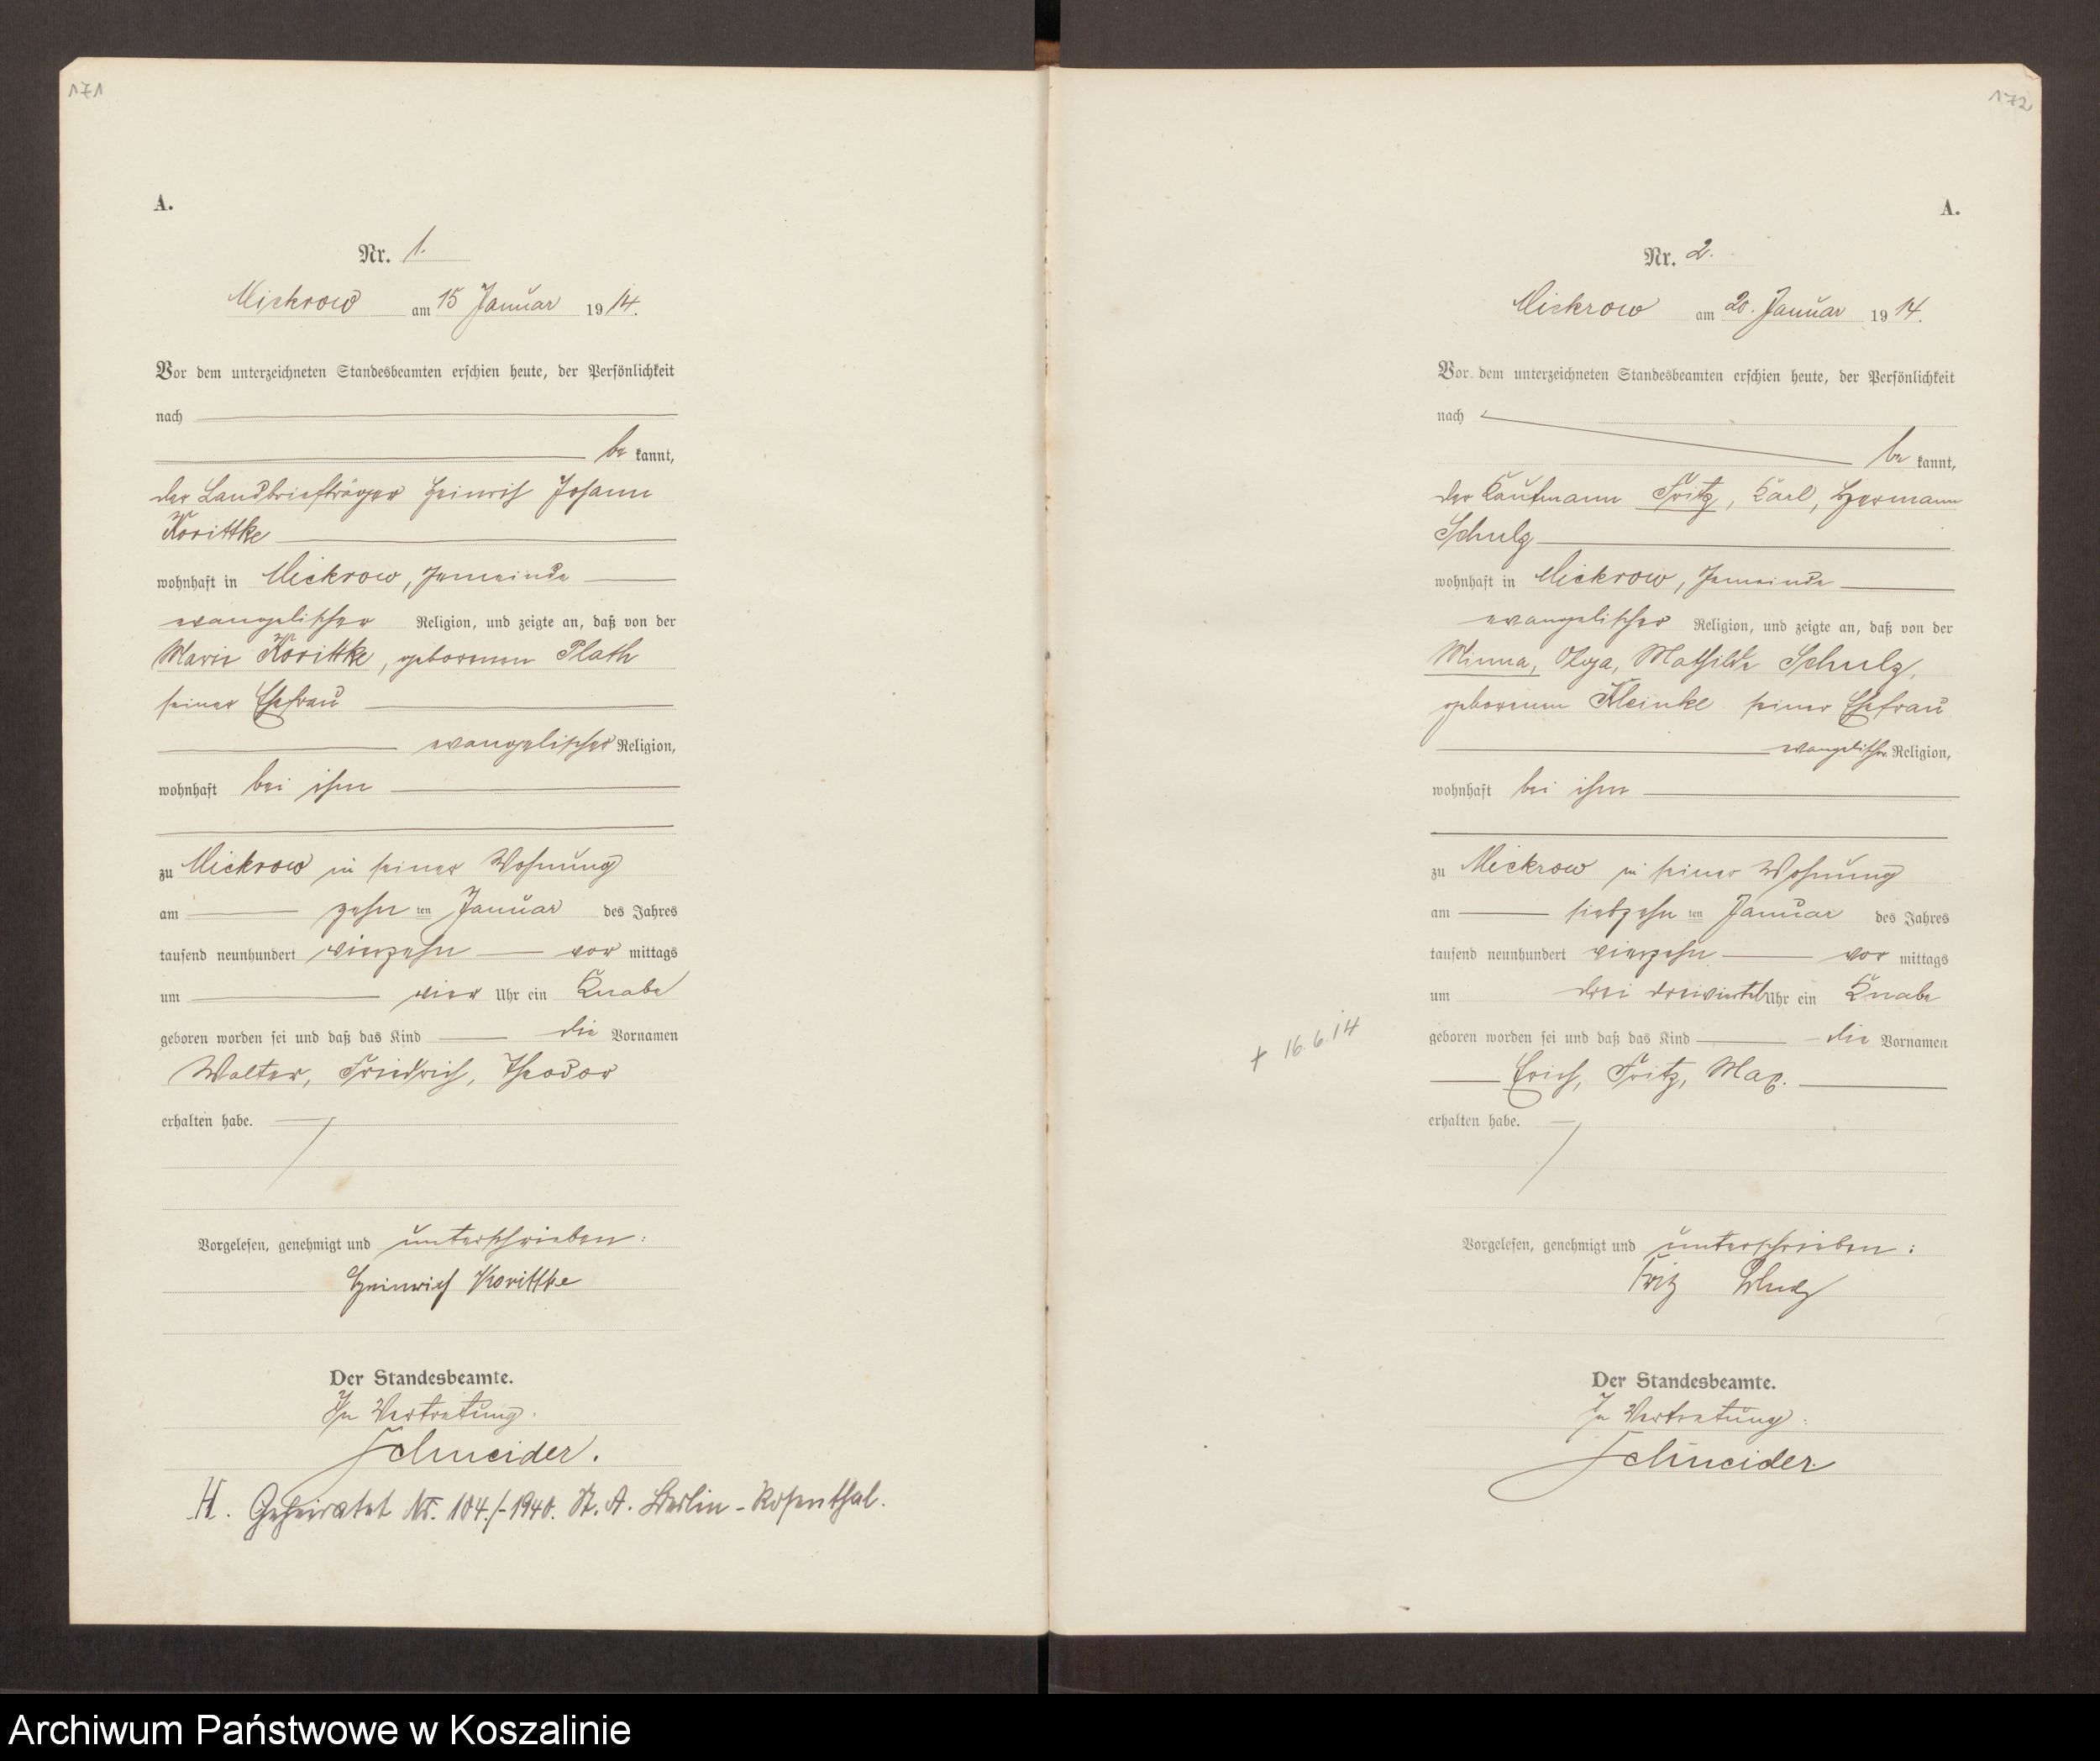 171
A.
Nr. 1.
Mickrow am 15 Januar 1914.
Vor dem unterzeichneten Standesbeamten erschien heute, der Persönlichkeit
nach
be kannt,
der Landbriefträger Heinrich Johann
Korittke
wohnhaft in Mickrow, Gemeinde
evangelischer Religion, und zeigte an, daß von der
Marie Korittke, geborenen Plath
seiner Ehefrau
evangelischer Religion,
wohnhaft bei ihm
zu Mickrow in seiner Wohnung
am zehn ten Januar des Jahres
tausend neunhundert vierzehn vor mittags
um vier Uhr ein Knabe
geboren worden sei und daß das Kind die Vornamen
Walter, Friedrich, Theodor
erhalten habe.
Vorgelesen, genehmigt und unterschrieben:
Heinrich Korittke
Der Standesbeamte.
In Vertretung.
Schneider.
H. Geheiratet Nr. 104./-1940. St. A. Berlin-Rosenthal.
172
A.
Nr. 2.
Mickrow am 20. Januar 1914.
Vor dem unterzeichneten Standesbeamten erschien heute, der Persönlichkeit
nach
be kannt,
der Kaufmann Fritz, Karl, Hermann
Schulz
wohnhaft in Mickrow, Gemeinde
evangelischer Religion, und zeigte an, daß von der
Minna, Olga, Mathilde Schulz,
geborenen Kleinke seiner Ehefrau
evangelischer Religion,
wohnhaft bei ihm
zu Mickrow in seiner Wohnung
am siebzehn ten Januar des Jahres
tausend neunhundert vierzehn vor mittags
um drei dreiviertel Uhr ein Knabe
geboren worden sei und daß das Kind die Vornamen
+ 16.6.14
Erich, Fritz, Max.
erhalten habe.
Vorgelesen, genehmigt und unterschrieben:
Fritz Schulz
Der Standesbeamte.
In Vertretung:
Schneider
Archiwum Państwowe w Koszalinie